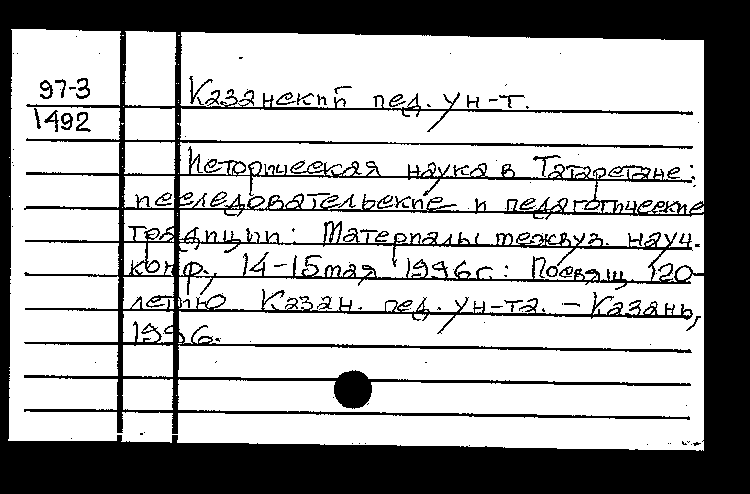 97-3
1492
Казанский пед. ун-т.
Историческая наука в Татарстане:
исследовательские и педагогические
традиции: Материалы межвуз. науч.
конф., 14-15 мая 1996 г.: Посвящ. 120-
летию Казан. пед. ун-та. - Казань,
1996.